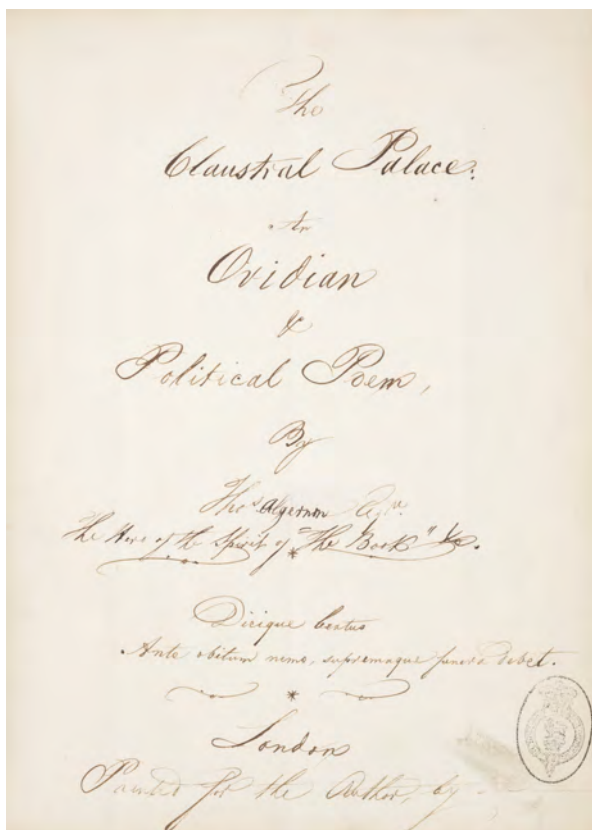 The
Claustral Palace:
An
Ovidian
&
Political Poem,
By
Thos Algernon Esqr.
The Hero of the Spirit of "The Book" &c.
*
Dicique beatus
Ante obitum nemo, supremaque funera debet.
*
London
Printed for the Author, by